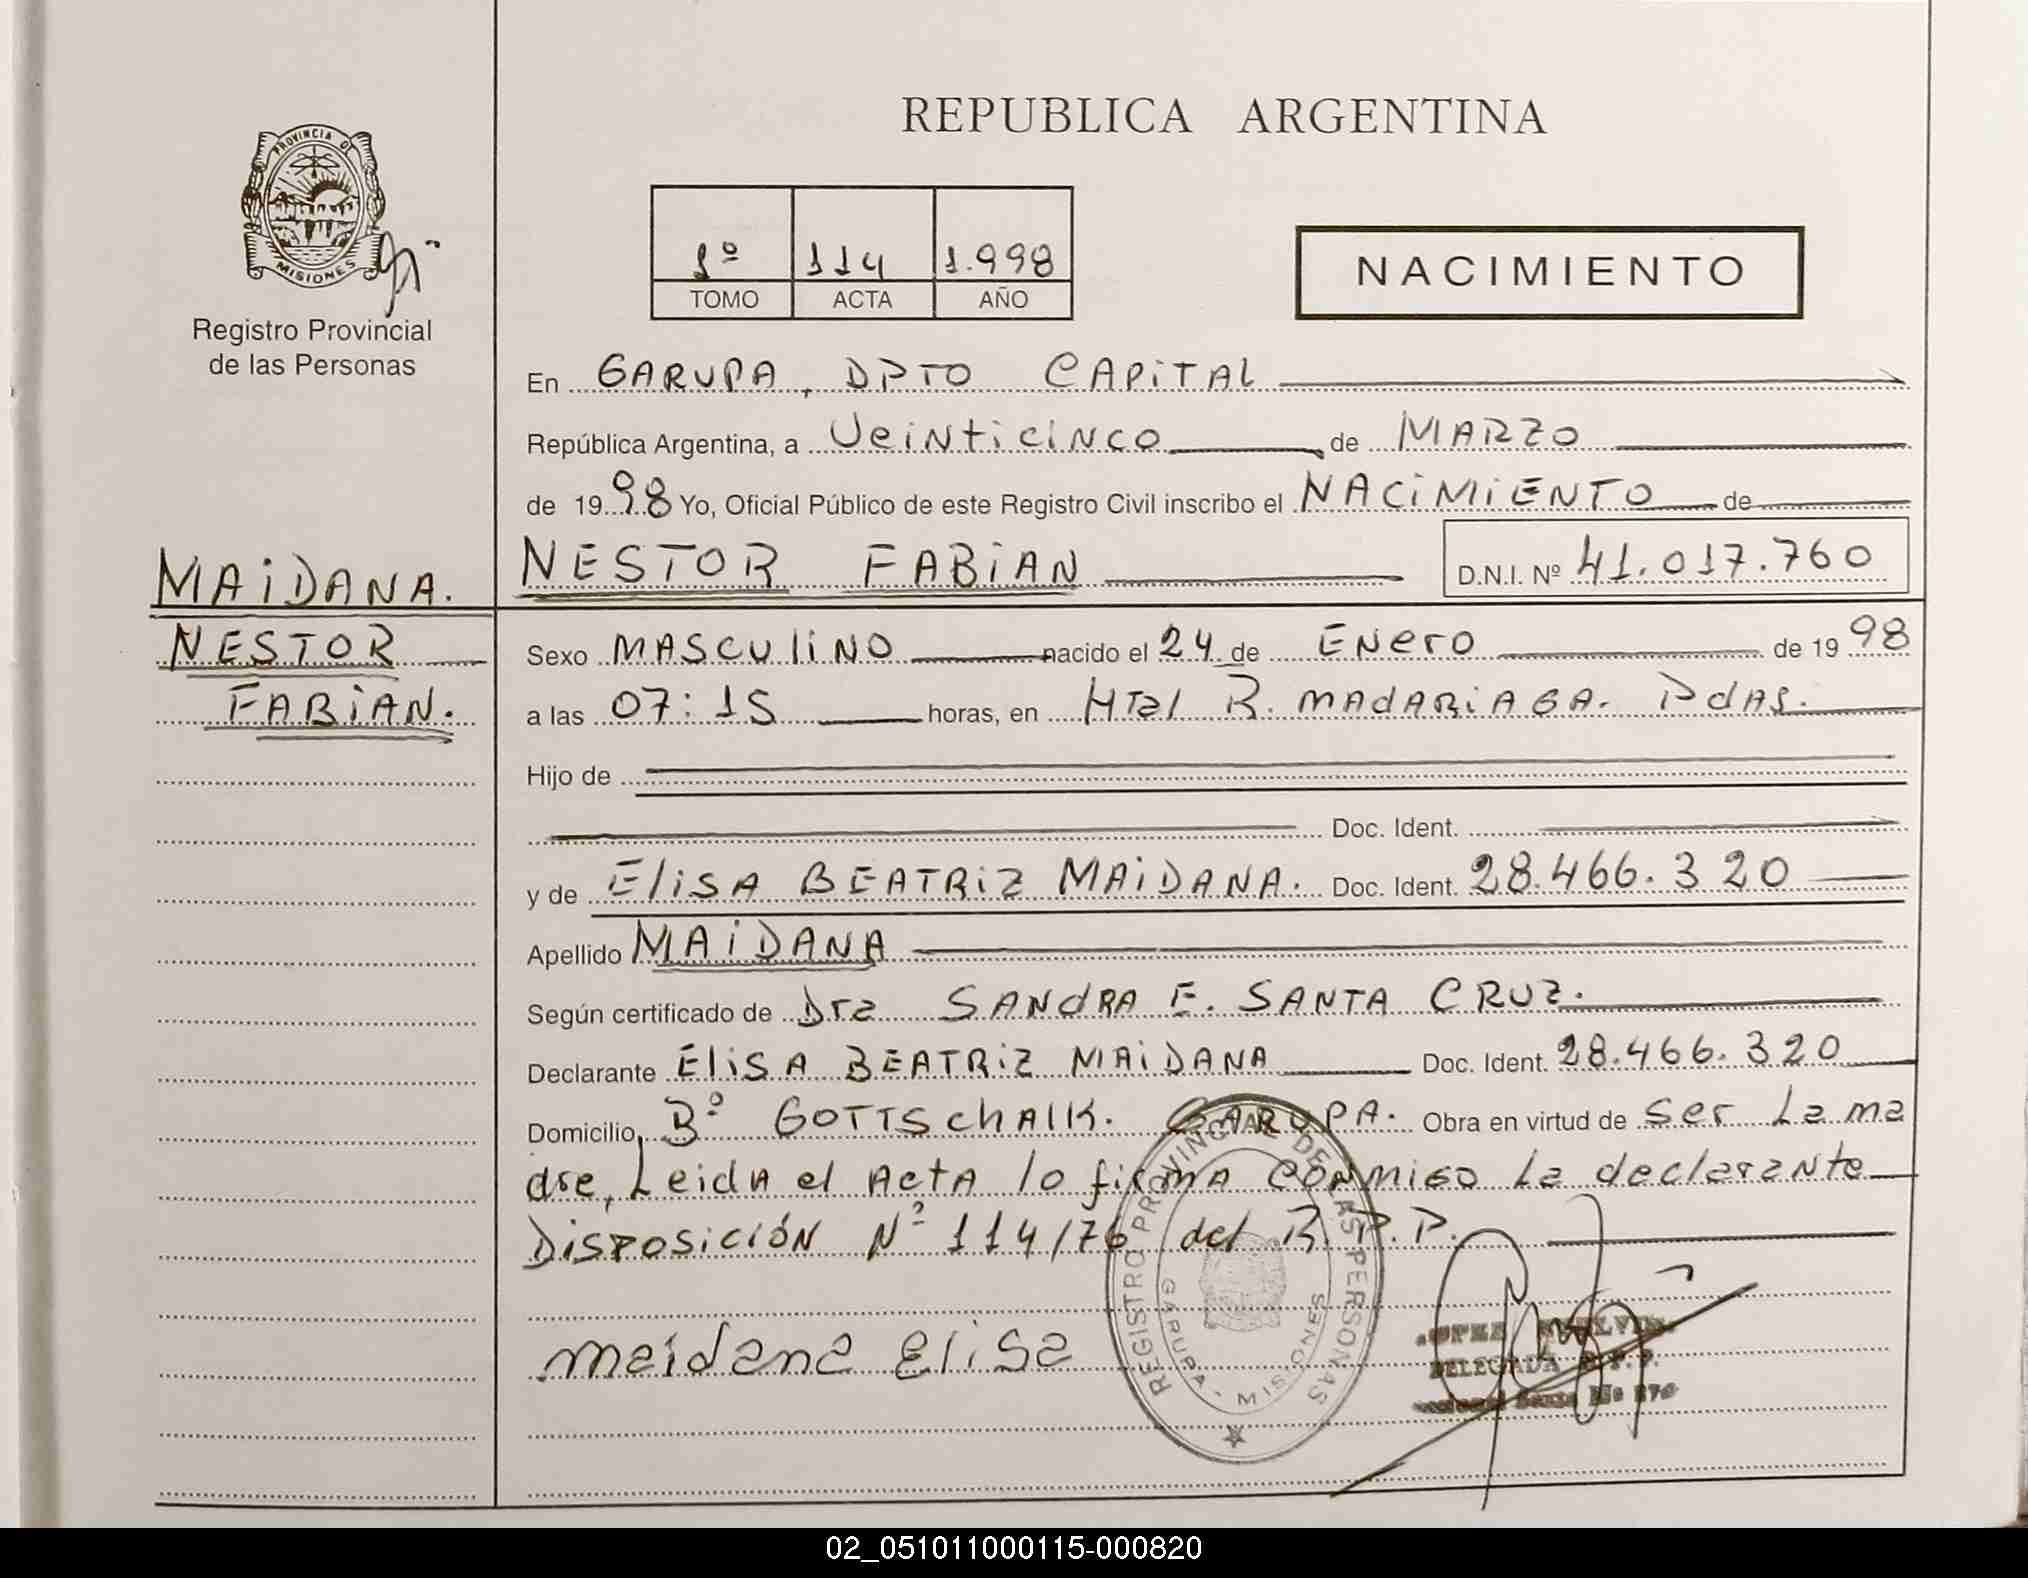 REPUBLICA ARGENTINA
PROVINCIA DE
MISIONES
Registro Provincial
de las Personas
1º 114 1.998
TOMO ACTA AÑO
NACIMIENTO
En GARUPA, DPTO CAPITAL
República Argentina, a Veinticinco de MARZO
de 1998 Yo, Oficial Público de este Registro Civil inscribo el NACIMIENTO de
NESTOR FABIAN D.N.I. Nº 41.017.760
MAIDANA.
NESTOR
FABIAN.
Sexo MASCULINO nacido el 24 de ENERO de 1998
a las 07:15 horas, en HTal R. MADARIAGA. PdAS.
Hijo de
Doc. Ident.
y de ElisA BEATRIZ MAIDANA. Doc. Ident. 28.466.320
Apellido MAIDANA
Según certificado de Dra SANDRA E. SANTA CRUZ.
Declarante ElisA BEATRIZ MAIDANA Doc. Ident. 28.466.320
Domicilio, Bº GOTTSchALK. GARUPA. Obra en virtud de ser La ma
dre, Leida el ACTA lo firmA CONMIGO La declarante
Disposición Nº 114/76 del R.P.P.
maidana elisa
REGISTRO PROVINCIAL DE LAS PERSONAS
GARUPA - MISIONES
DELEGADA R.P.P.
02_051011000115-000820